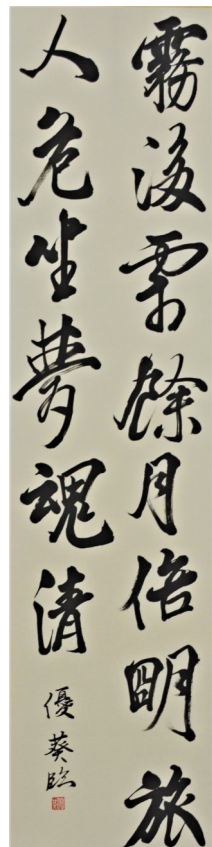 霧後雫餘月倍明旅
人危坐夢魂清
優葵臨